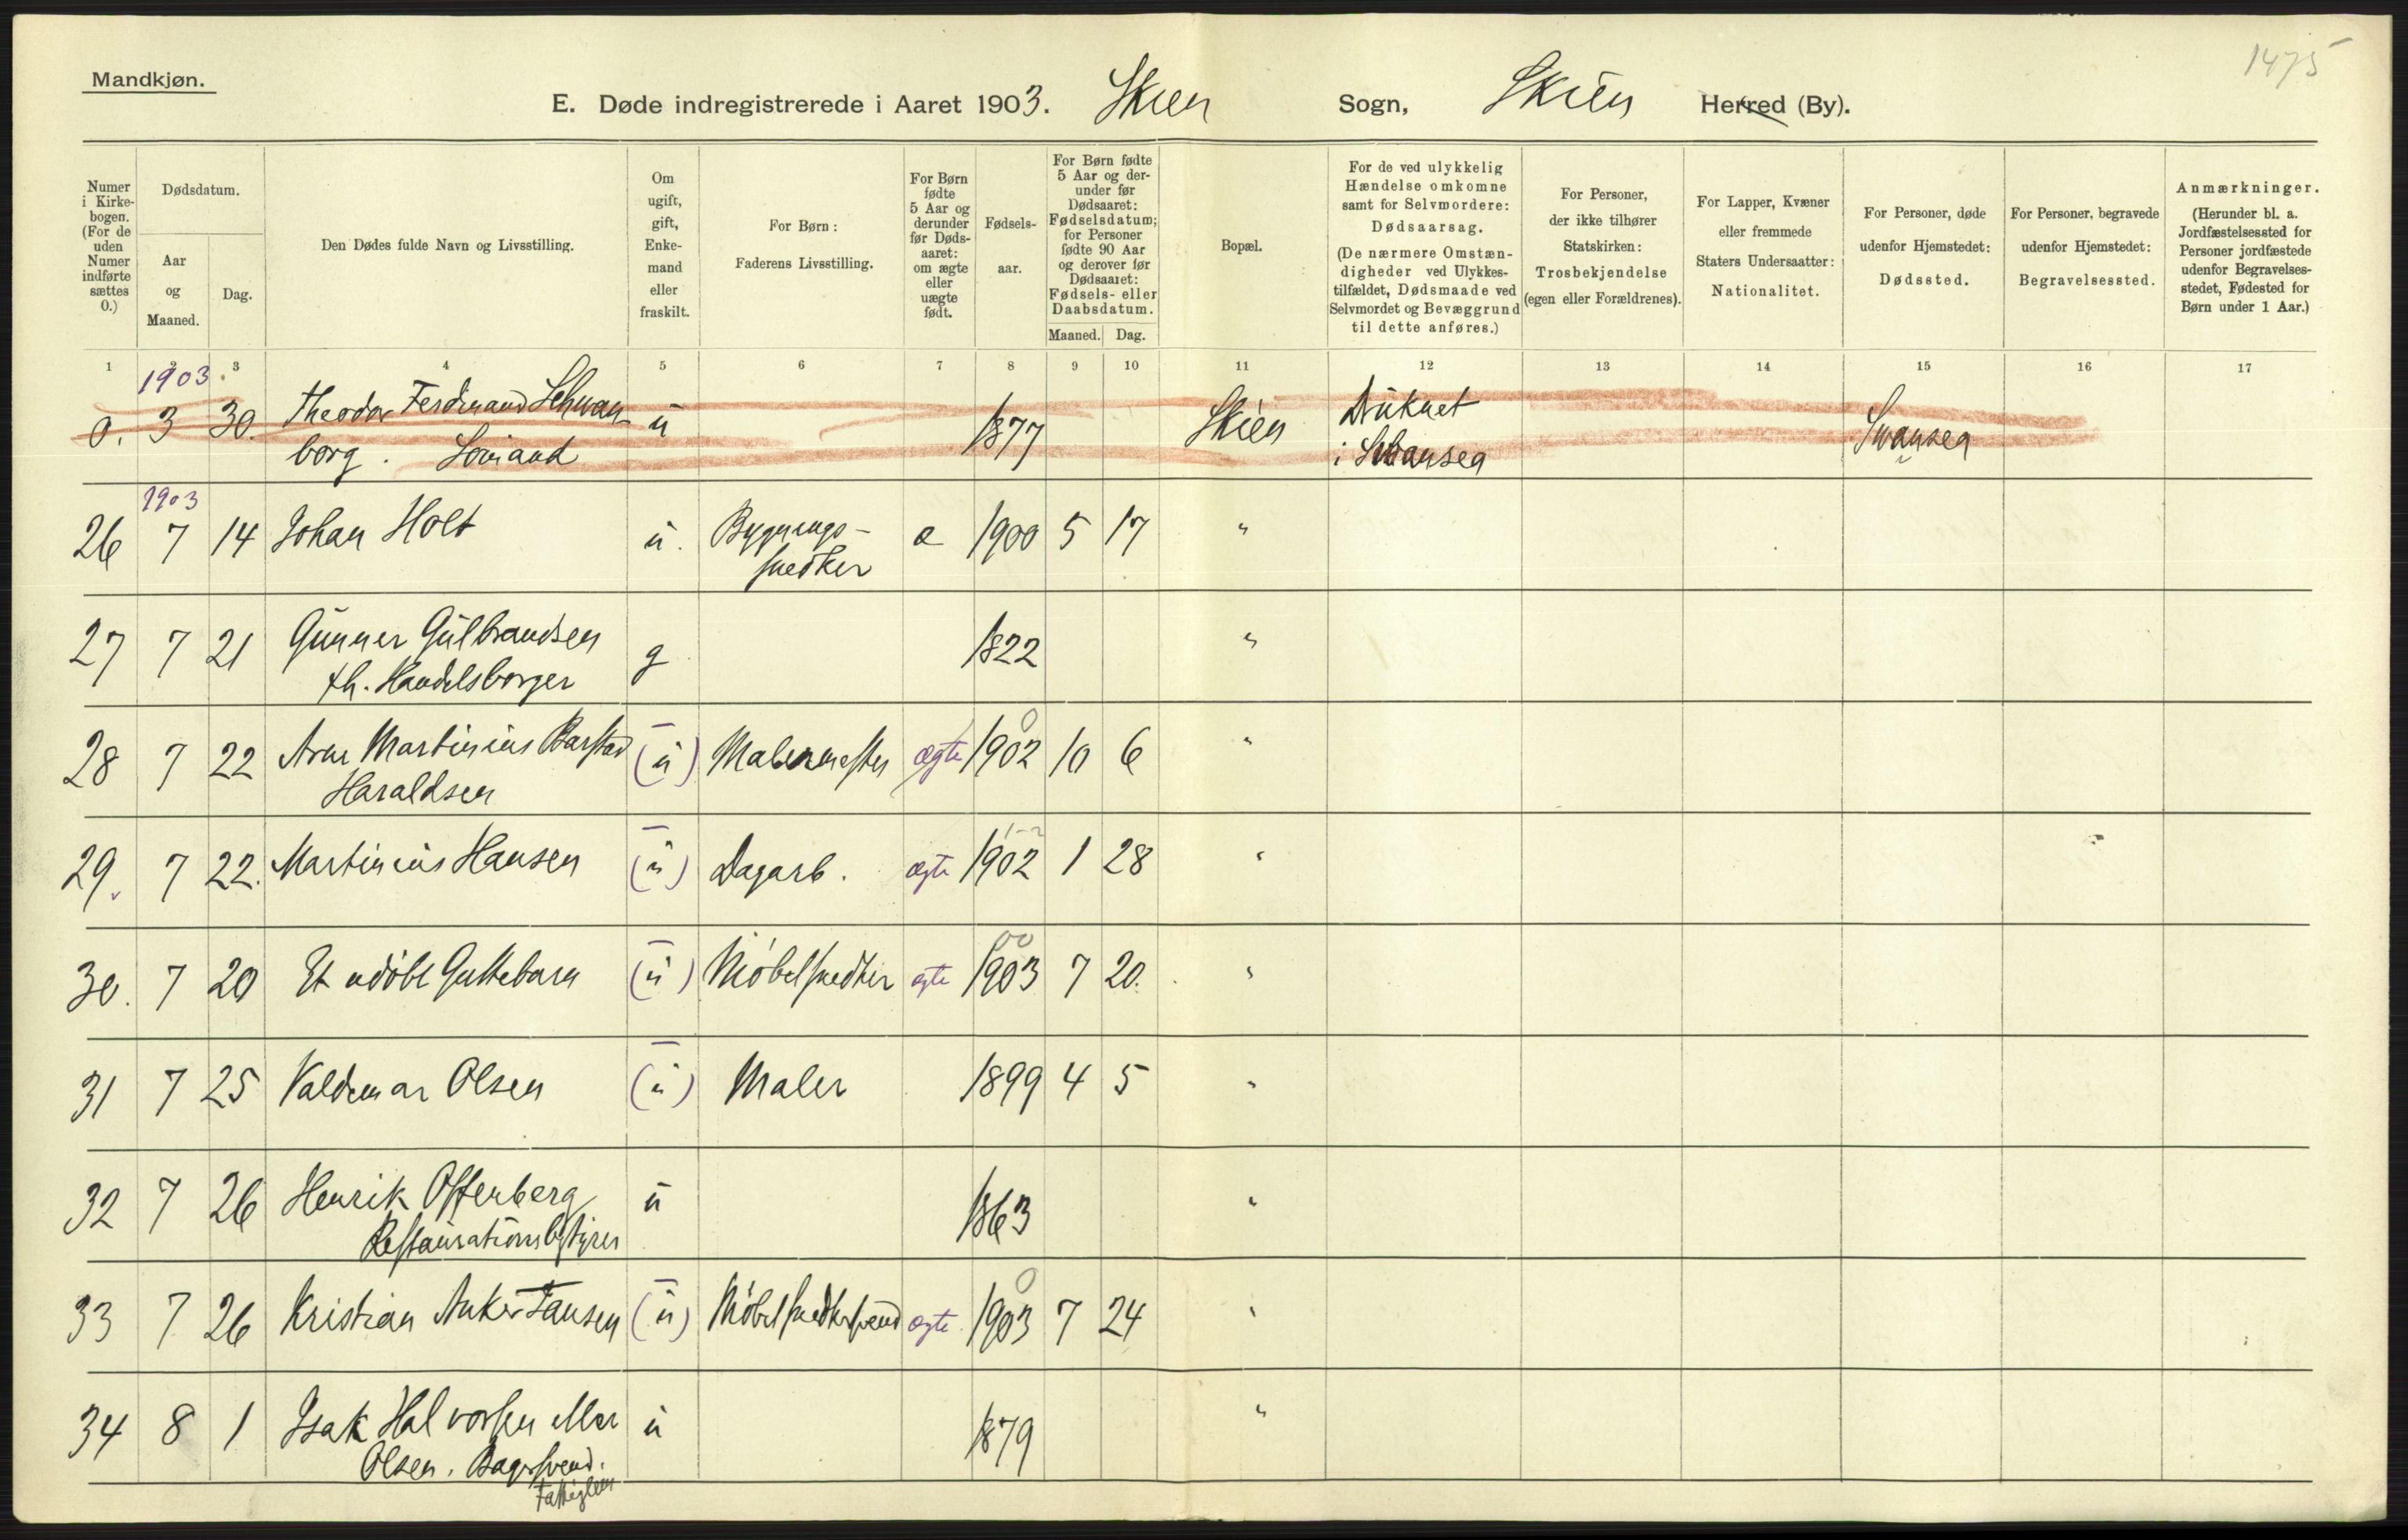 1475
Mandkjøn.
E. Døde indregistrerede i Aaret 1903. Skien Sogn, Skien Herred (By).
Numer i Kirkebogen. (For de uden Numer indførte sættes 0.)
Dødsdatum.
Aar og Maaned.
Dag.
Den Dødes fulde Navn og Livsstilling.
Om ugift, gift, Enkemand eller fraskilt.
For Børn: Faderens Livsstilling.
For Børn fødte 5 Aar og derunder før Dødsaaret: om ægte eller uægte født.
Fødselsaar.
For Børn fødte 5 Aar og derunder før Dødsaaret: Fødselsdatum; for Personer fødte 90 Aar og derover før Dødsaaret: Fødsels- eller Daabsdatum.
Maaned. Dag.
Bopæl.
For de ved ulykkelig Hændelse omkomne samt for Selvmordere: Dødsaarsag. (De nærmere Omstændigheder ved Ulykkestilfældet, Dødsmaade ved Selvmordet og Bevæggrund til dette anføres.)
For Personer, der ikke tilhører Statskirken: Trosbekjendelse (egen eller Forældrenes).
For Lapper, Kvæner eller fremmede Staters Undersaatter: Nationalitet.
For Personer, døde udenfor Hjemstedet: Dødssted.
For Personer, begravede udenfor Hjemstedet: Begravelsessted.
Anmærkninger. (Herunder bl. a. Jordfæstelsessted for Personer jordfæstede udenfor Begravelsesstedet, Fødested for Børn under 1 Aar.)
1 2 3 4 5 6 7 8 9 10 11 12 13 14 15 16 17
1903
0. 3 30. Theodor Ferdinand Schwan- u 1877 Skien Druknet Swansea
borg. Sømand i Swansea
1903
26 7 14 Johan Holt u. Bygnings- æ 1900 5 17 "
snedker
27 7 21 Gunner Gulbrandsen g 1822 "
fh. Handelsborger
28 7 22 Arne Martinius Barstad (u) Malermester ægte 1902 10 6 "
Haraldsen
29. 7 22. Martinius Hansen (u) Dagarb. ægte 1902 1 28 "
30. 7 20 Et udøbt Guttebarn (u) Møbelsnedker ægte 1903 7 20. "
31 7 25 Valdemar Olsen (u) Maler 1899 4 5 "
32 7 26 Henrik Offenberg u 1863 "
Restaurationsbestyrer
33 7 26 Kristian Anker Jansen (u) Møbelsnedkersvend ægte 1903 7 24 "
34 8 1 Isak Halvorsen eller u 1879 "
Olsen. Bagersvend.
Fattiglem